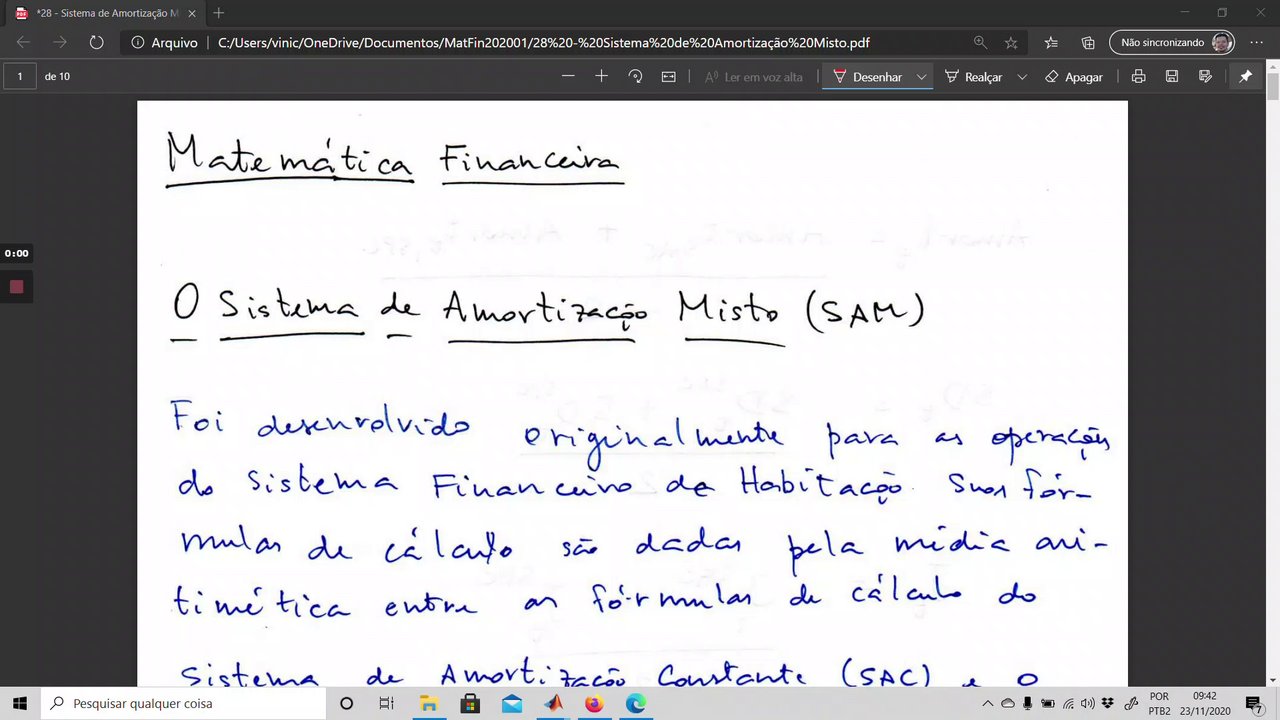 *28 - Sistema de Amortização M
Arquivo
C:/Users/vinic/OneDrive/Documentos/MatFin202001/28%20-%20Sistema%20de%20Amortização%20Misto.pdf
Não sincronizando
1 de 10
Ler em voz alta
Desenhar
Realçar
Apagar
0:00
Matemática Financeira
O Sistema de Amortização Misto (SAM)
Foi desenvolvido originalmente para as operações
do Sistema Financeiro de Habitação. Suas fór-
mulas de cálculo são dadas pela média ari-
timética entre as fórmulas de cálculo do
Sistema de Amortização Constante (SAC) e o
Pesquisar qualquer coisa
POR
PTB2
09:42
23/11/2020
7